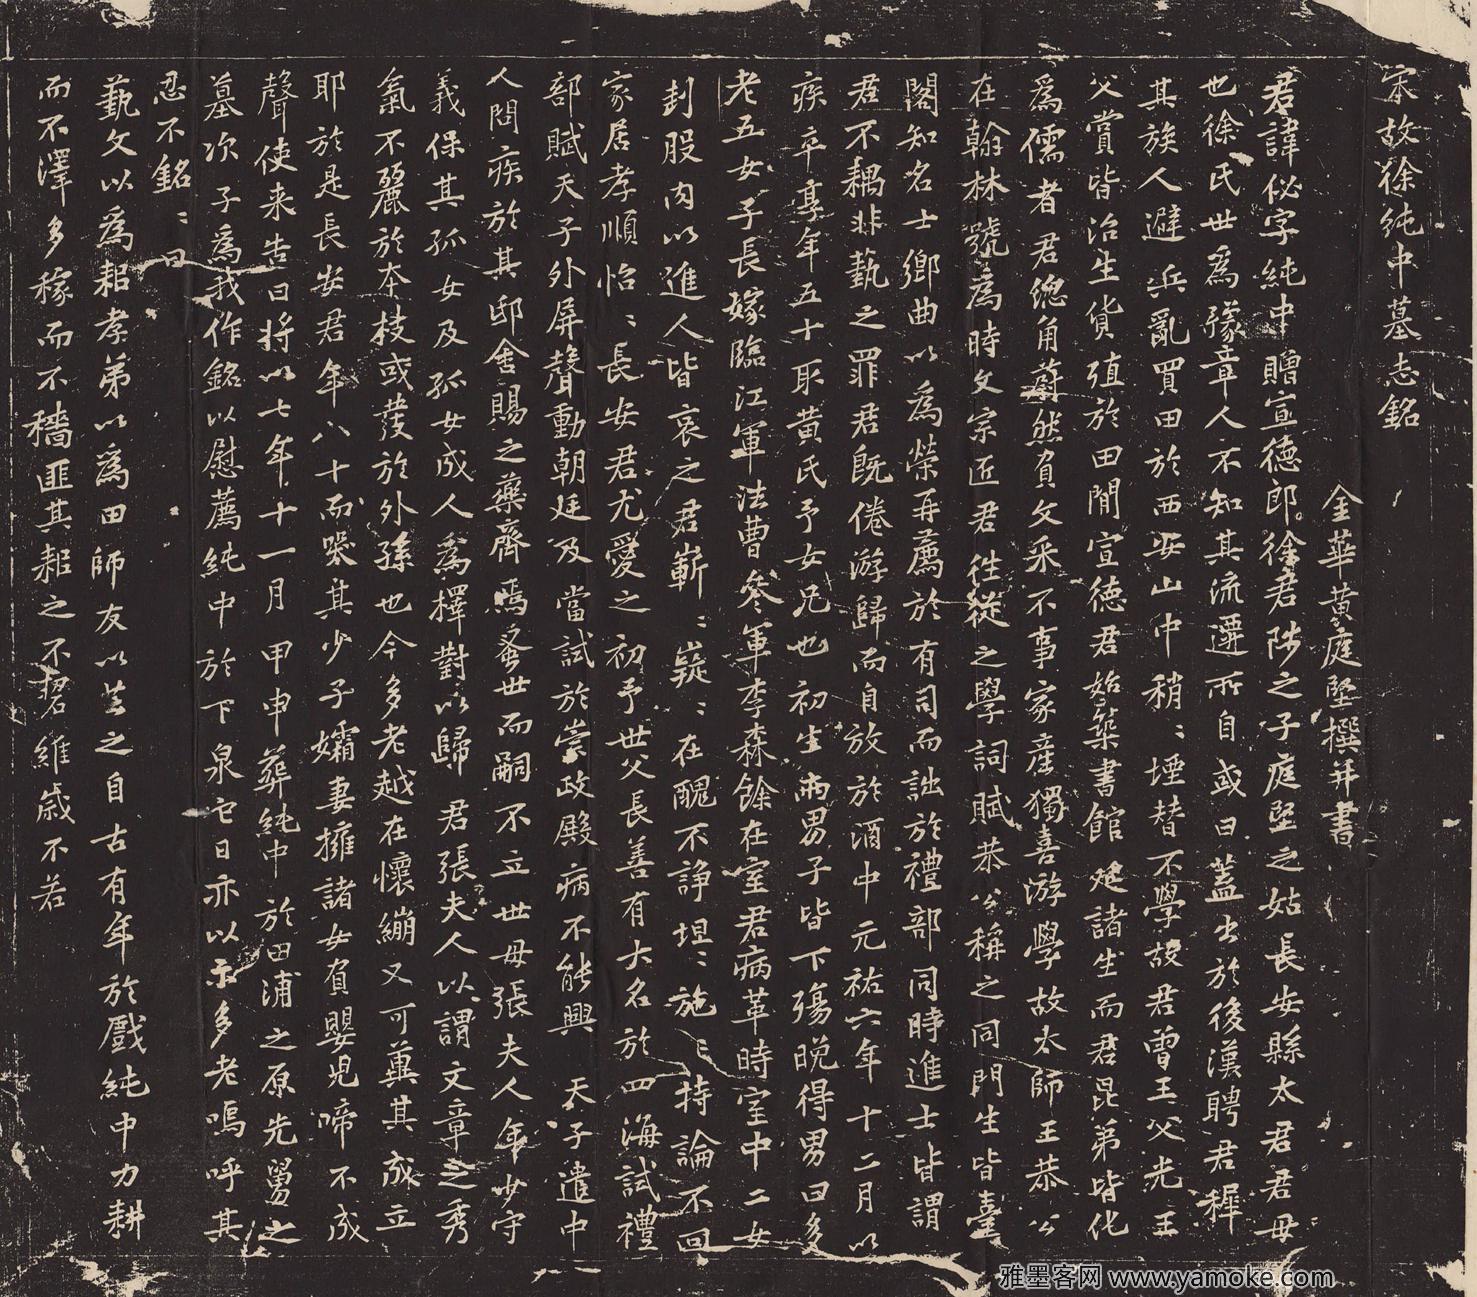 宋故徐純中墓志銘
金華黃庭堅撰并書
君諱佖字純中贈宣德郎徐君陟之子庭堅之姑長安縣太君君母
也徐氏世為豫章人不知其流遷所自或曰蓋出於後漢聘君穉
其族人避兵亂買田於西安山中稍〻堙替不學故君曾王父光王
父賞皆治生貨殖於田閒宣德君始築書館延諸生而君昆弟皆化
為儒者君總角蔚然負文采不事家產獨喜游學故太師王恭公
在翰林號為時文宗匠君往從之學詞賦恭公稱之同門生皆臺
閣知名士鄉曲以為榮再薦於有司而詘於禮部同時進士皆謂
君不耦非藝之罪君既倦游歸而自放於酒中元祐六年十二月以
疾卒享年五十取黃氏予女兄也初生兩男子皆下殤晚得男曰多
老五女子長嫁臨江軍法曹參軍李森餘在室君病革時室中二女
刲股肉以進人皆哀之君嶄〻嶷〻在醜不諍坦〻施〻持論不回
家居孝順怡〻長安君尤愛之初予世父長善有大名於四海試禮
部賦天子外屏聲動朝廷及當試於崇政殿病不能興 天子遣中
人問疾於其邸舍賜之藥齊焉蚤世而嗣不立世母張夫人年少守
義保其孤女及孤女成人為擇對以歸 君張夫人以謂文章之秀
氣不麗於本枝或發於外孫也今多老越在懷繃又可冀其成立
耶於是長安君年八十而哭其少子孀妻擁諸女負嬰兒啼不成
聲使来告曰將以七年十一月 甲申葬純中 於田浦之原先舅之
墓次子為我作銘以慰薦純中 於下泉它日亦以示多老嗚呼其
忍不銘〻曰
藝文以為耜孝弟以為田師友以芸之自古有年於戲純中力耕
而不澤多稼而不穡匪其耜之不䂮維歲不若
雅墨客网 www.yamoke.com